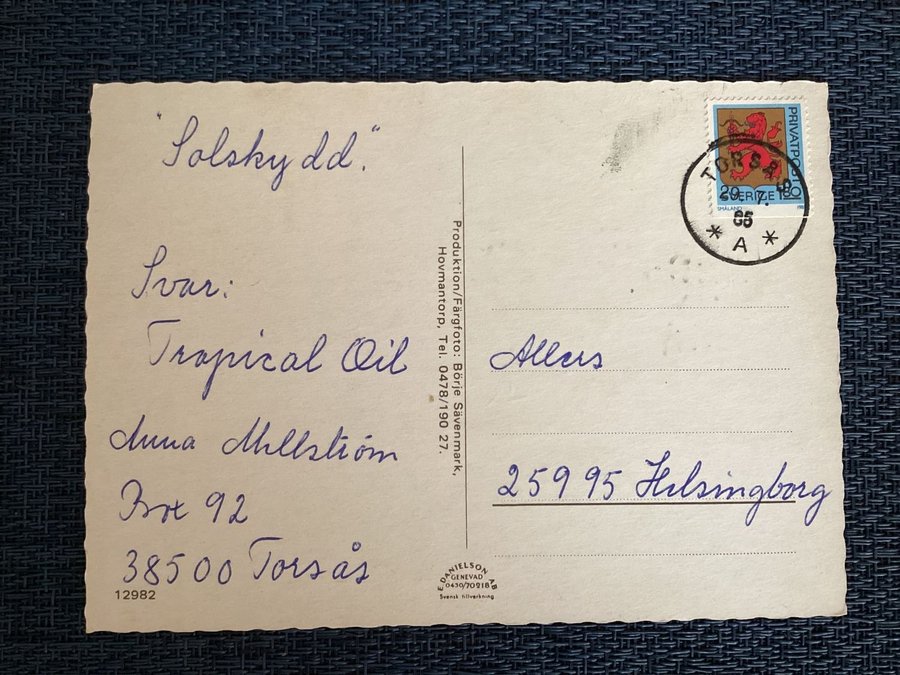 "Solskydd".
Svar:
Tropical Oil
Anna
Box 92
38500 Torsås
12982
Produktion/Färgfoto: Börje Sävenmark,
Hovmantorp, Tel. 0478/190 27.
E. DANIELSON AB
GENEVAD
0430/70218
Svensk tillverkning
PRIVATPOST
SVERIGE
SMÅLAND
TORSÅS
29. 7.
A
Allers
25995 Helsingborg